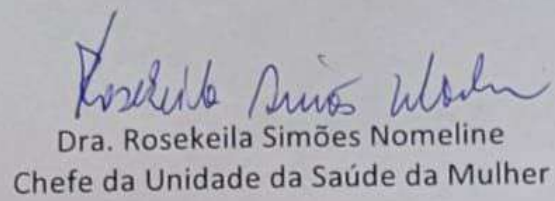 Rosekeila Simões
Dra. Rosekeila Simões Nomeline
Chefe da Unidade da Saúde da Mulher